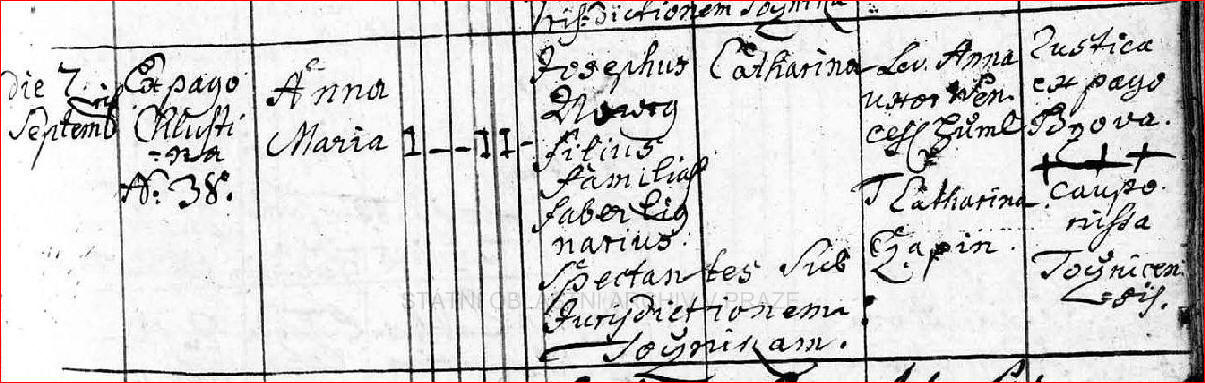 Jurisdictionem Toÿnica
die 7
Septemb
Ex pago
Chlusti
-na
N: 38.
Anna
Maria
Josephus
Nowey
filius
familias
faber lig
narius.
Spectantes sub
Jurisdictionem
Toÿnicam.
Catharina
Lev. Anna
uxor Wen-
T Catharina
Czapin.
Rustica
ex pago
Bzova.
caupo
nissa
Toÿnicen
STÁTNÍ OBLASTNÍ ARCHIV V PRAZE